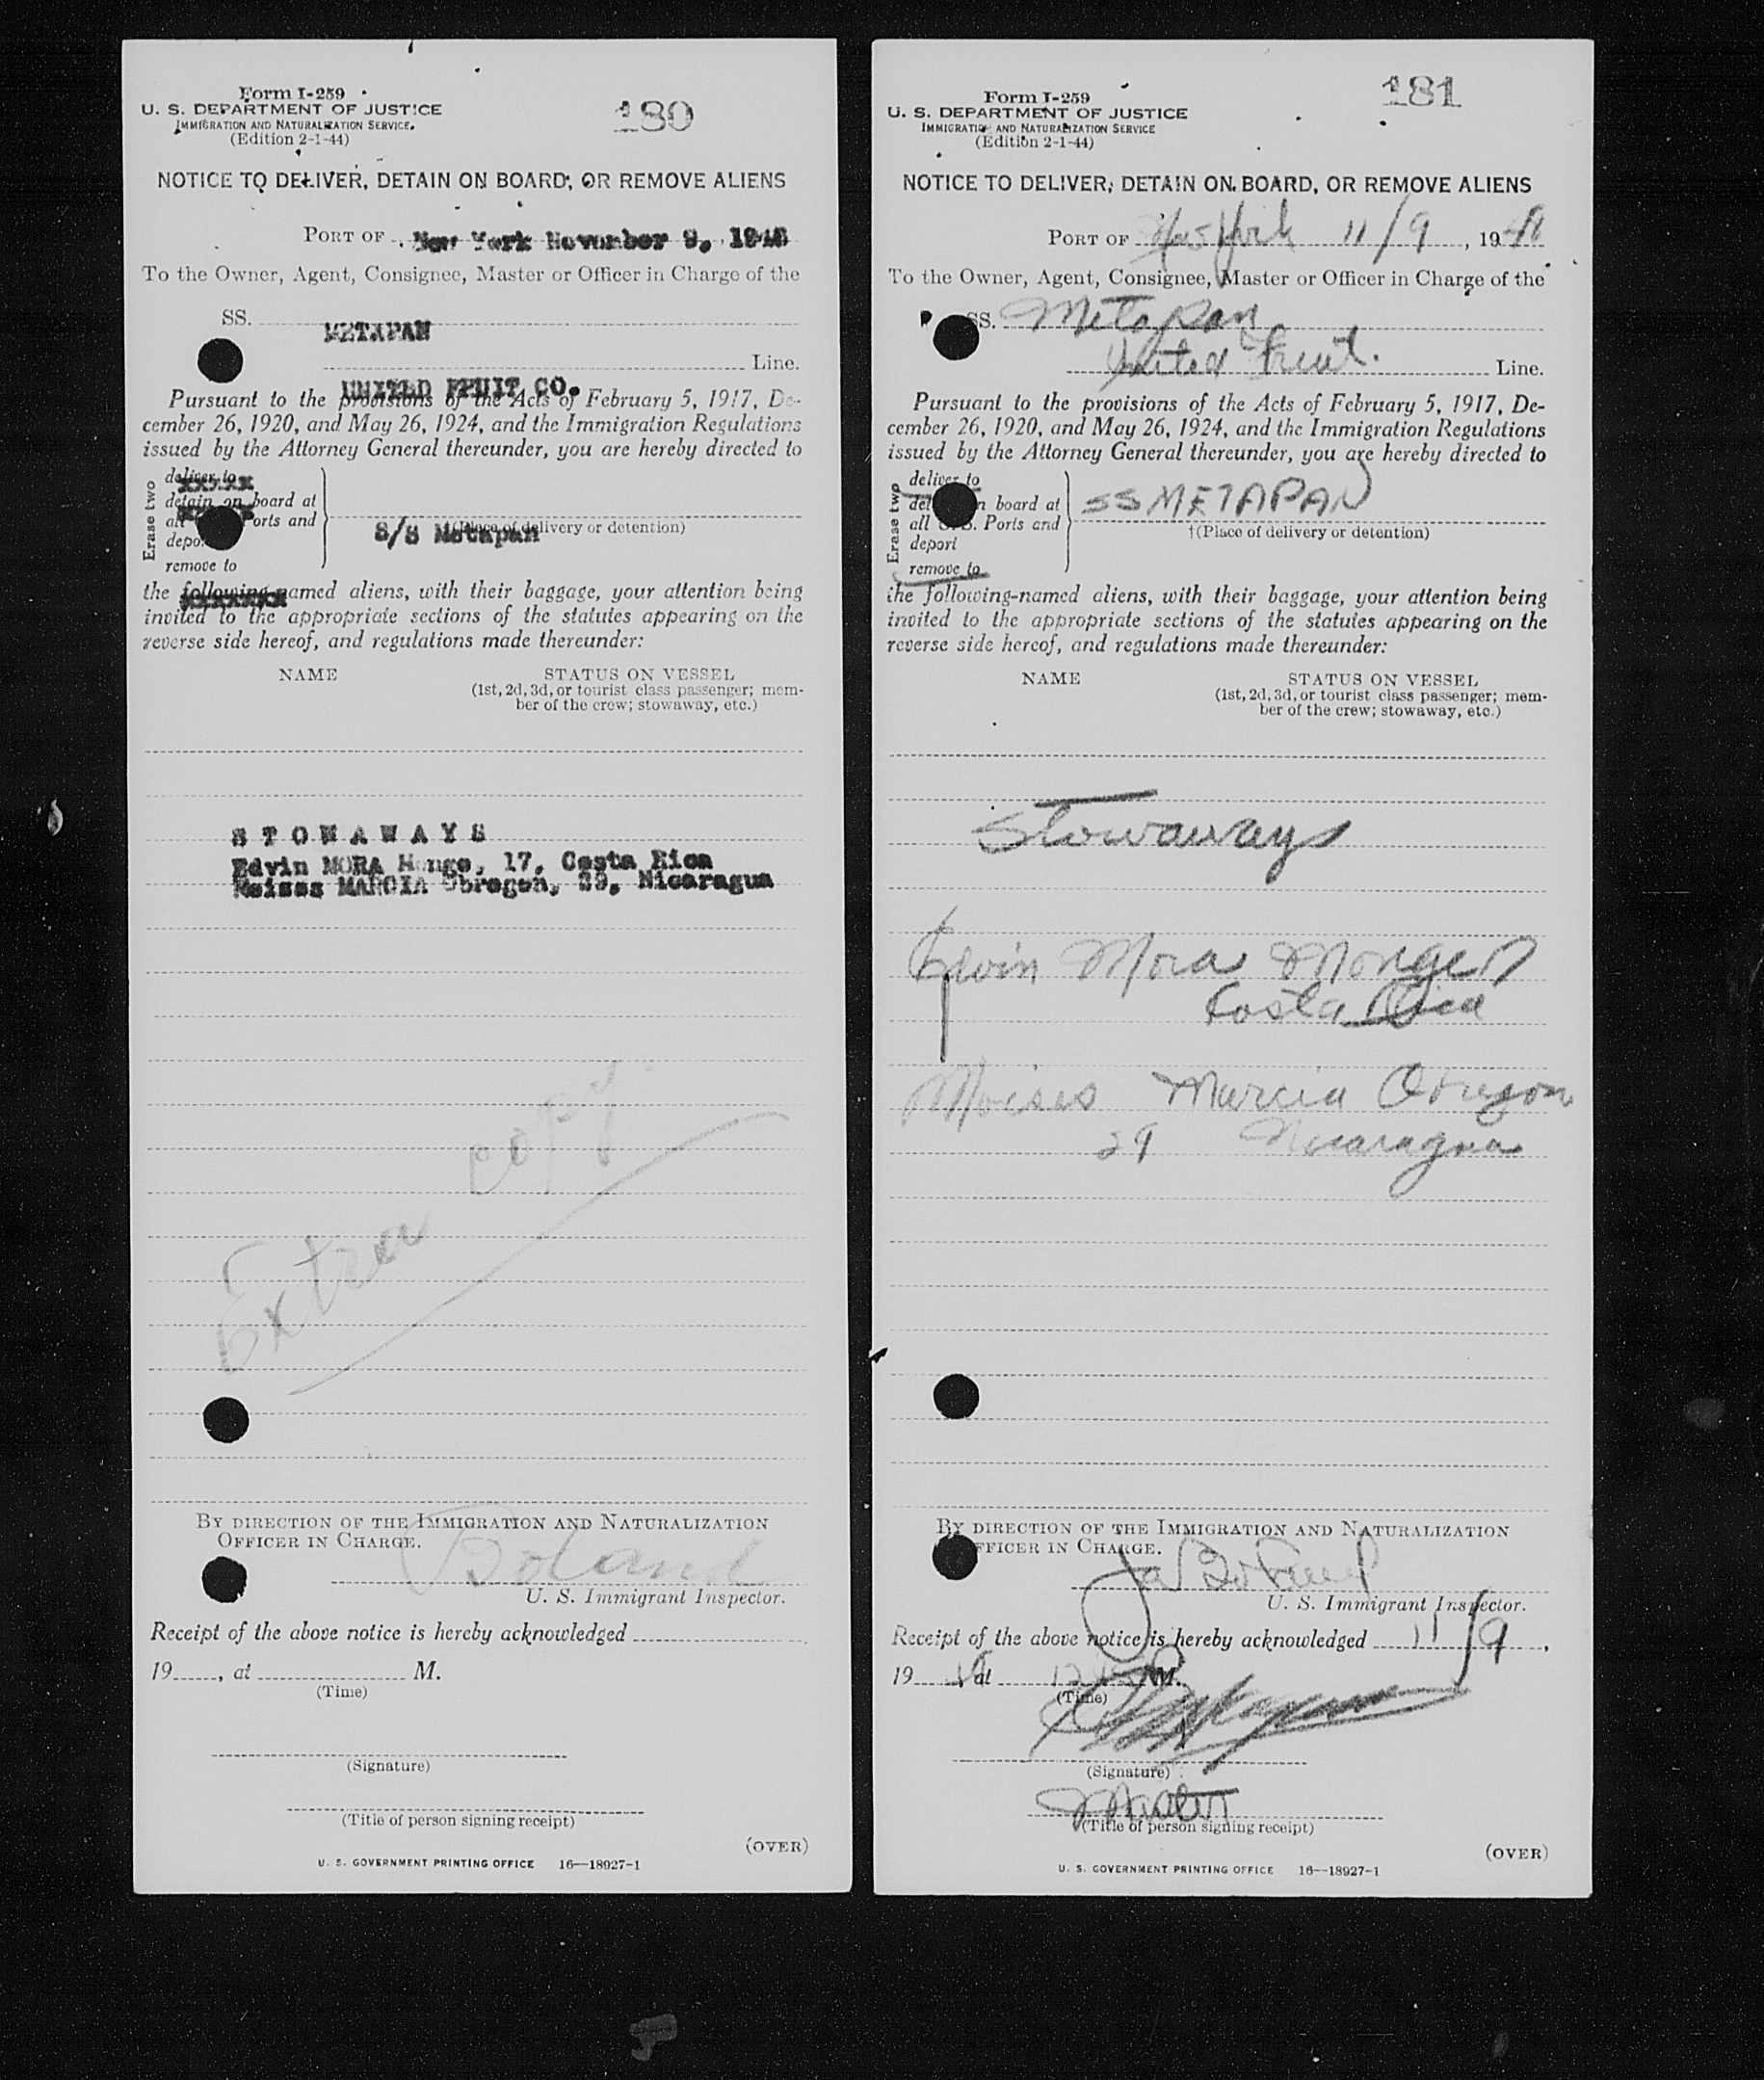 Form I-259
U. S. DEPARTMENT OF JUSTICE
IMMIGRATION AND NATURALIZATION SERVICE
(Edition 2-1-44)
180
NOTICE TO DELIVER, DETAIN ON BOARD, OR REMOVE ALIENS
PORT OF New York November 9, 194
To the Owner, Agent, Consignee, Master or Officer in Charge of the
SS. METAPAN
Line.
UNITED FRUIT CO.
Pursuant to the provisions of the Acts of February 5, 1917, De-
cember 26, 1920, and May 26, 1924, and the Immigration Regulations
issued by the Attorney General thereunder, you are hereby directed to
Erase two
deliver to
detain on board at
all Ports and
depo
remove to
S/S Metapan
(Place of delivery or detention)
the following-named aliens, with their baggage, your attention being
invited to the appropriate sections of the statutes appearing on the
reverse side hereof, and regulations made thereunder:
NAME
STATUS ON VESSEL
(1st, 2d, 3d, or tourist class passenger; mem-
ber of the crew; stowaway, etc.)
STOWAWAYS
Edvin MORA Monge, 17, Costa Rica
Moises MARCIA Obregon, 29, Nicaragua
Extra copy
BY DIRECTION OF THE IMMIGRATION AND NATURALIZATION
OFFICER IN CHARGE.
Boland
U. S. Immigrant Inspector.
Receipt of the above notice is hereby acknowledged
19 , at M.
(Time)
(Signature)
(Title of person signing receipt)
(OVER)
U. S. GOVERNMENT PRINTING OFFICE 16—18927-1
Form I-259
U. S. DEPARTMENT OF JUSTICE
IMMIGRATION AND NATURALIZATION SERVICE
(Edition 2-1-44)
181
NOTICE TO DELIVER, DETAIN ON BOARD, OR REMOVE ALIENS
PORT OF New York 11/9, 19
To the Owner, Agent, Consignee, Master or Officer in Charge of the
SS. Metapan
United Fruit. Line.
Pursuant to the provisions of the Acts of February 5, 1917, De-
cember 26, 1920, and May 26, 1924, and the Immigration Regulations
issued by the Attorney General thereunder, you are hereby directed to
Erase two
deliver to
det n board at
all U.S. Ports and
deport
remove to
SS METAPAN
†(Place of delivery or detention)
the following-named aliens, with their baggage, your attention being
invited to the appropriate sections of the statutes appearing on the
reverse side hereof, and regulations made thereunder:
NAME
STATUS ON VESSEL
(1st, 2d, 3d, or tourist class passenger; mem-
ber of the crew; stowaway, etc.)
Stowaways
Edvin Mora Monge 17
Costa Rica
Moises Marcia Obregon
29 Nicaragua
BY DIRECTION OF THE IMMIGRATION AND NATURALIZATION
OFFICER IN CHARGE.
Boland
U. S. Immigrant Inspector.
Receipt of the above notice is hereby acknowledged 11/9,
19 at M.
(Time)
(Signature)
Master
(Title of person signing receipt)
(OVER)
U. S. GOVERNMENT PRINTING OFFICE 16—18927-1